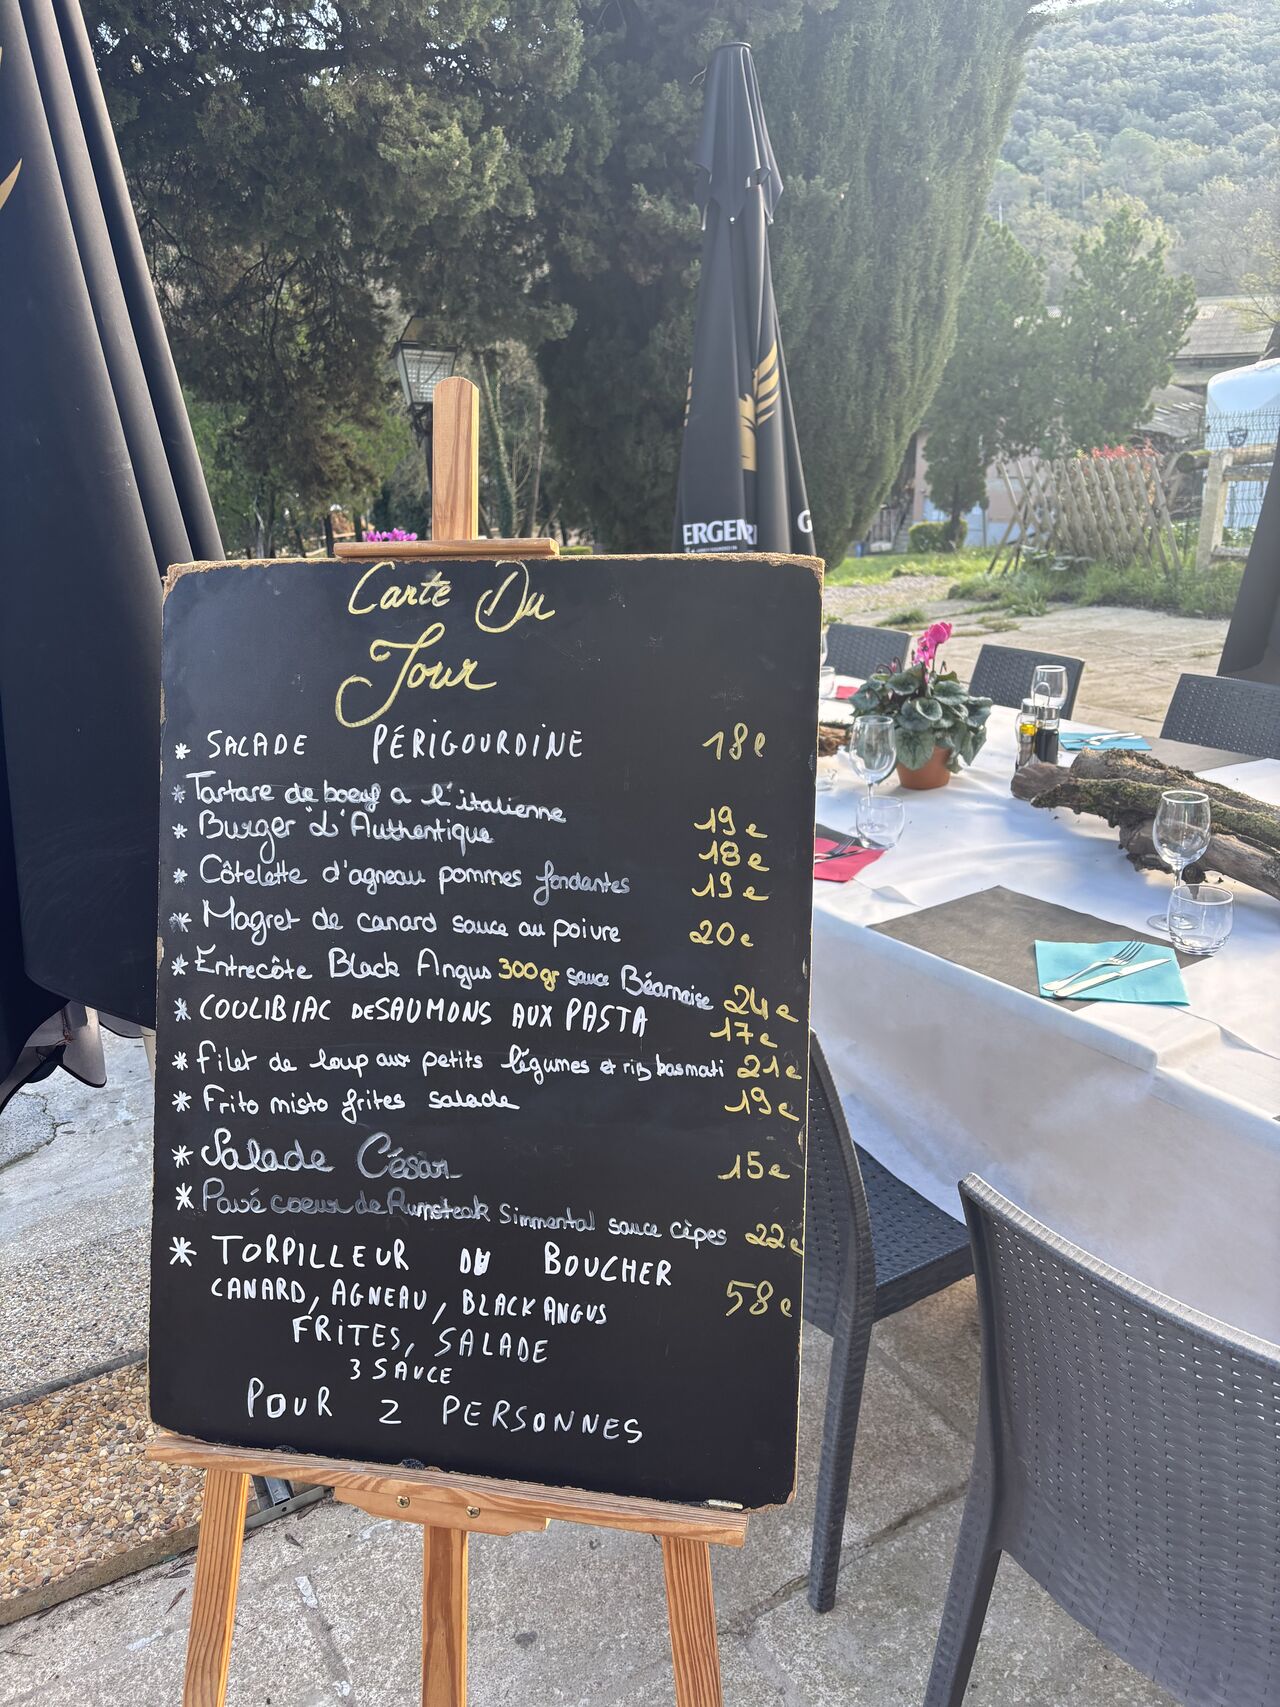 ERGEN
G
Carte Du
Jour
* SALADE PÉRIGOURDINE 18e
* Tartare de boeuf a l'italienne 19e
* Burger "L'Authentique 18e
* Côtelette d'agneau pommes fondantes 19e
* Magret de canard sauce au poivre 20e
* Entrecôte Black Angus 300gr sauce Béarnaise 24e
* COULIBIAC DE SAUMONS AUX PASTA 17e
* Filet de loup aux petits légumes et riz basmati 21e
* Frito misto frites salade 19e
* Salade César 15e
* Pavé coeur de Rumsteak Simmental sauce cèpes 22e
* TORPILLEUR DU BOUCHER
CANARD, AGNEAU, BLACK ANGUS 58e
FRITES, SALADE
3 SAUCE
POUR 2 PERSONNES